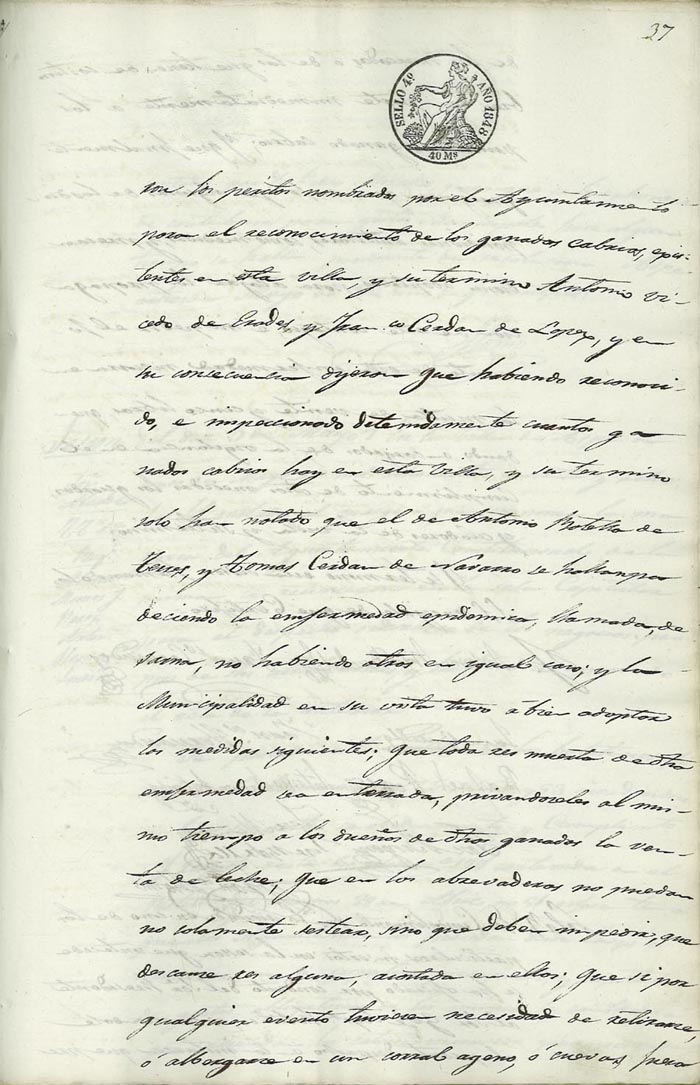 37
SELLO 4º AÑO 1848
40 Ms
ron los peritos nombrados por el Ayuntamiento
para el reconocimiento de los ganados cabrios, exis-
tentes en esta villa, y su termino Antonio Vi-
cedo de Erades, y Fran.co Cerdan de Lopez, y en
su consecuencia dijeron que habiendo reconoci-
do, e inspeccionado detenidamente cuantos ga
nados cabrios hay en esta villa, y su termino
solo han notado que el de Antonio Botella de
Terres, y Tomas Cerdan de Navarro se hallan pa
deciendo la enfermedad epidemica, llamada, de
sarna, no habiendo otros en igual caso; y la
Municipalidad en su vista tuvo á bien adoptar
las medidas siguientes; Que toda res muerta de dha
enfermedad sea enterrada, privandoseles al mis-
mo tiempo a los dueños de dhos ganados la ven-
ta de leche; Que en los abrevaderos no puedan
no solamente sestear, sino que deben impedir, que
descanse res alguna, acostada en ellos; Que si por
qualquier evento tuviere necesidad de retirarse,
ó albergarse en un corral ageno, ó cuevas, fuera